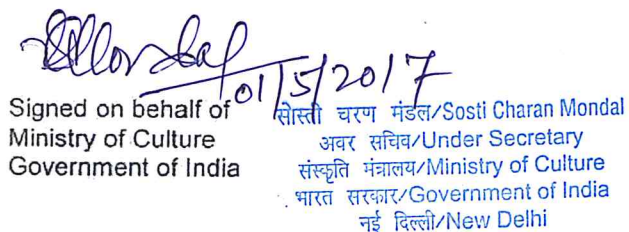 SMondal
01/5/2017
Signed on behalf of
Ministry of Culture
Government of India
सोस्ती चरण मंडल/Sosti Charan Mondal
अवर सचिव/Under Secretary
संस्कृति मंत्रालय/Ministry of Culture
भारत सरकार/Government of India
नई दिल्ली/New Delhi